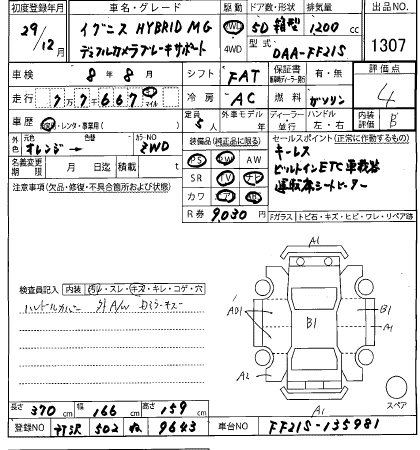 初度登録年月 車名・グレード 駆動 ドア数・形状 排気量 出品NO
29/12月 イグニス HYBRID MG 4WD 5D 箱型 1200 cc 1307
デュアルカメラブレーキサポート 型式 DAA-FF21S
車検 8年 8月 シフト FAT 保証書 有・無 評価点 4
走行 77667 マイル 冷房 AC 燃料 ガソリン
車歴 レンタ・事業用 定員 5人 外車モデル 年 ディーラー 並行 ハンドル 左・右 内装 B
外色 元色 オレンジ→ 色替 カラーNO ZWD 装備品(純正品に限る) セールスポイント(正常に作動するもの)
名義変更期限 月 日迄 積載 t PS PW AW キーレス
注意事項(欠品・修復・不具合箇所および状態) SR TV ナビ ビルトインETC車載器
カワ 運転席シートヒーター
R券 9,030円 Fガラス トビ石・キズ・ヒビ・ワレ・リペア跡
検査員記入 内装 汚レ・スレ・キズ・キレ・コゲ・穴
ハンドルカバー
A1
B1
B1
A1
A2
A1
スペア
長さ 370cm 幅 166cm 高さ 159cm
登録NO 所沢 502 ね 9643 車台NO FF21S-135981